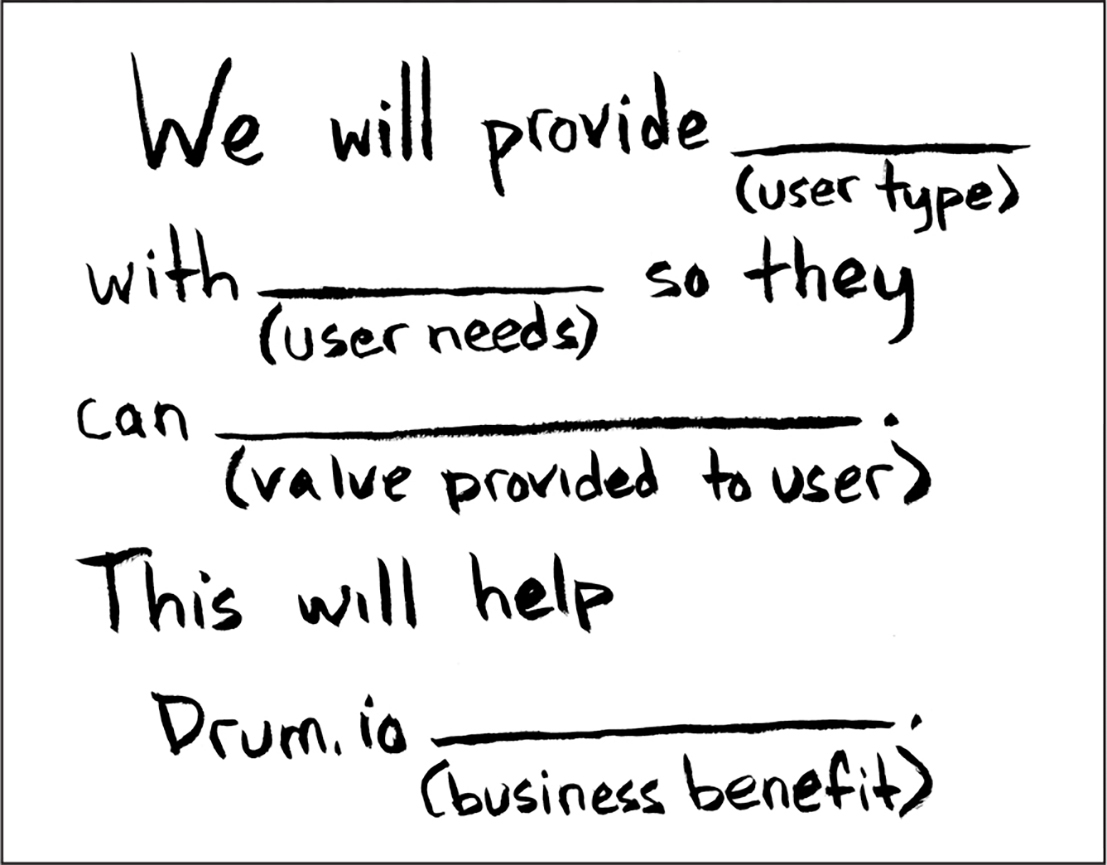 We will provide
(user type)
with so they
(user needs)
can .
(value provided to user)
This will help
Drum.io .
(business benefit)